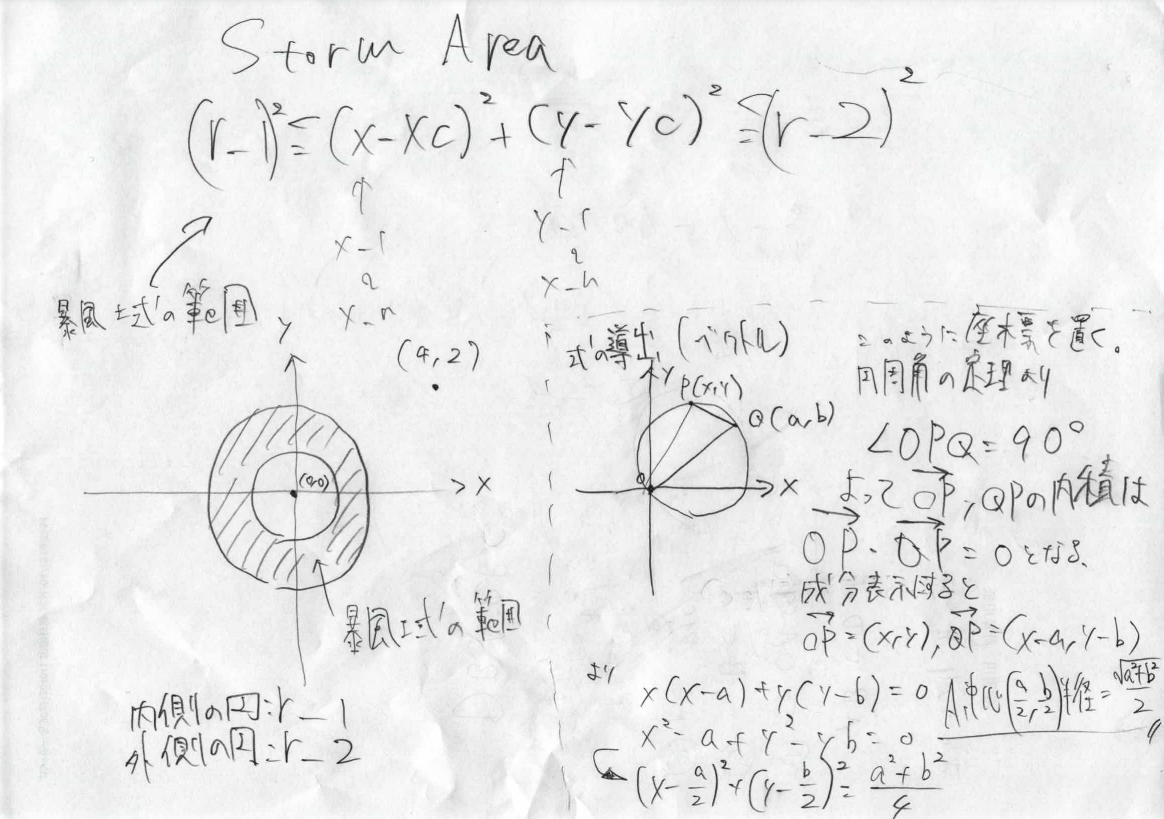 Storm Area
(r_1)² ≦ (x-xc)² + (y-yc)² ≦ (r_2)²
↑ ↑
x_r y_r
x_n x_n
暴風域の範囲
y
(4,2)
(0,0)
x
暴風域の範囲
内側の円:r_1
外側の円:r_2
式の導出(ベクトル)
y
P(x,y)
Q(a,b)
O
x
このように座標を置く。
円周角の定理より
∠OPQ=90°
よって OP→,QPの内積は
OP→・QP→=0となる、
成分表示すると
OP→=(x,y), QP→=(x-a,y-b)
より
x(x-a)+y(y-b)=0
x²-a+y²-yb=0
(x-a/2)²+(y-b/2)²=(a²+b²)/4
A,中心(a/2,b/2)半径=√(a²+b²)/2